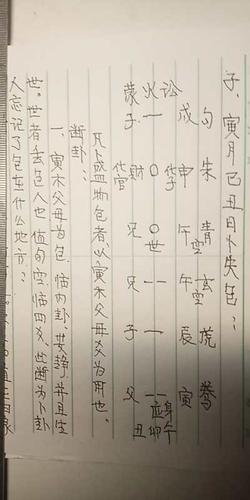 子、寅月己丑日卜失包:
勾 朱 青 玄 虎 螣
讼 戌 申 午空 午空 辰 寅
火 世 应
蒙 子 财 兄 兄 子 父
凡卜盛物包者,以寅木父母爻为用也。
断卦:
一、寅木父母为包,临内卦,安静,并且生
世。世者丢包人也,值旬空,临四爻,此断为卜卦
人忘记了包在什么地方?